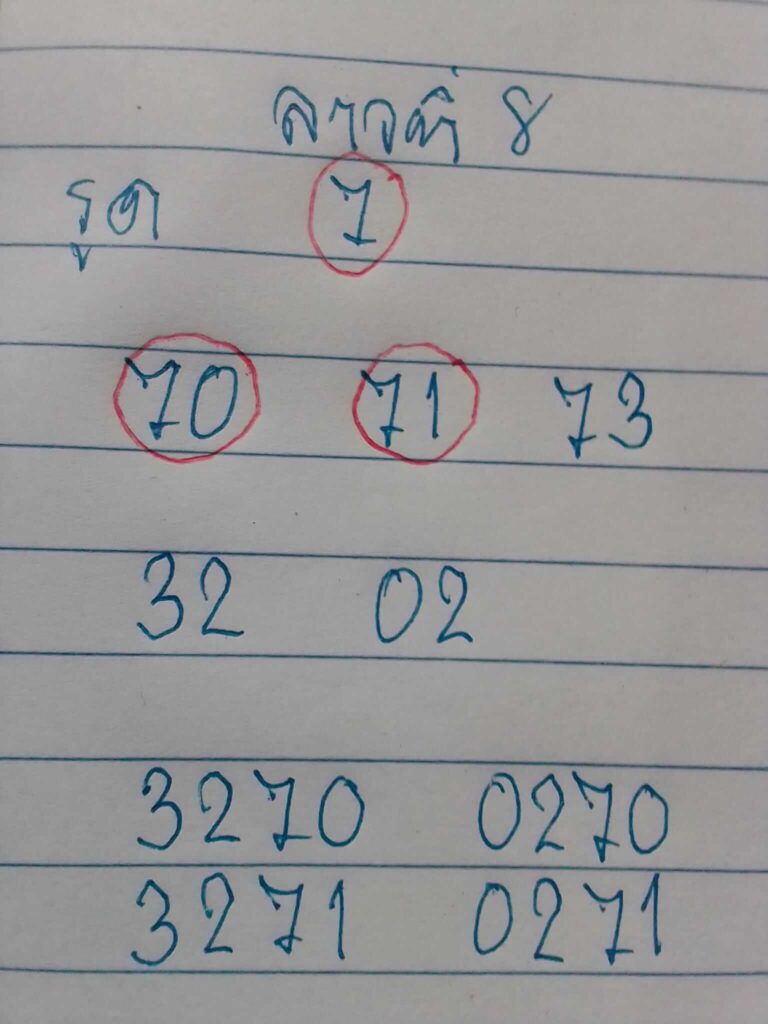 ลาวที่ 8
รูด 7
70 71 73
32 02
3270 0270
3271 0271